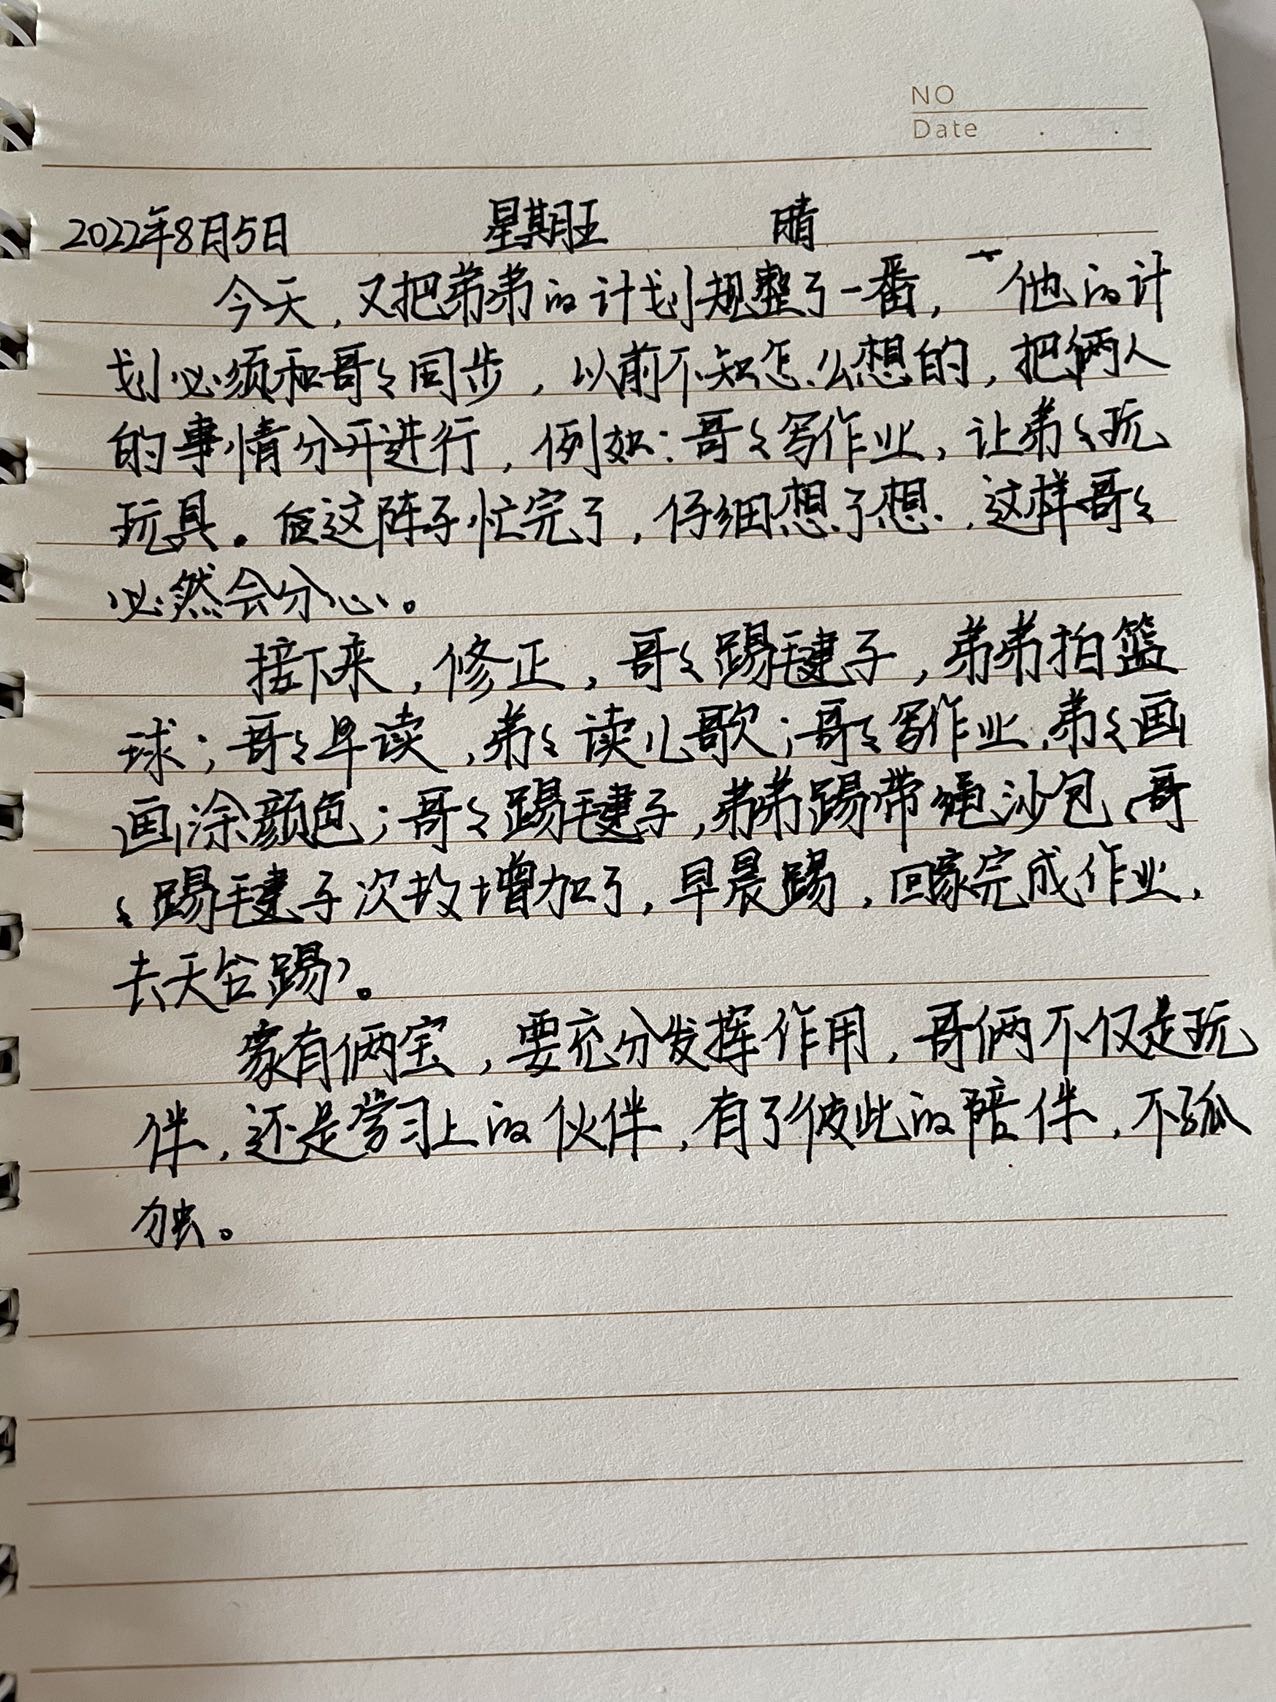 NO
Date . .
2022年8月5日 星期五 晴
今天,又把弟弟的计划规整了一番,他的计
划必须和哥々同步,以前不知怎么想的,把俩人
的事情分开进行,例如:哥々写作业,让弟々玩
玩具。但这阵子忙完了,仔细想了想,这样哥々
必然会分心。
接下来,修正,哥々踢毽子,弟弟拍篮
球;哥々早读,弟々读儿歌;哥々写作业,弟々画
画涂颜色;哥々踢毽子,弟弟踢带绳沙包(哥
々踢毽子次数增加了,早晨踢,回家完成作业,
去天台踢)。
家有俩宝,要充分发挥作用,哥俩不仅是玩
伴,还是学习上的伙伴,有了彼此的陪伴,不孤
独。